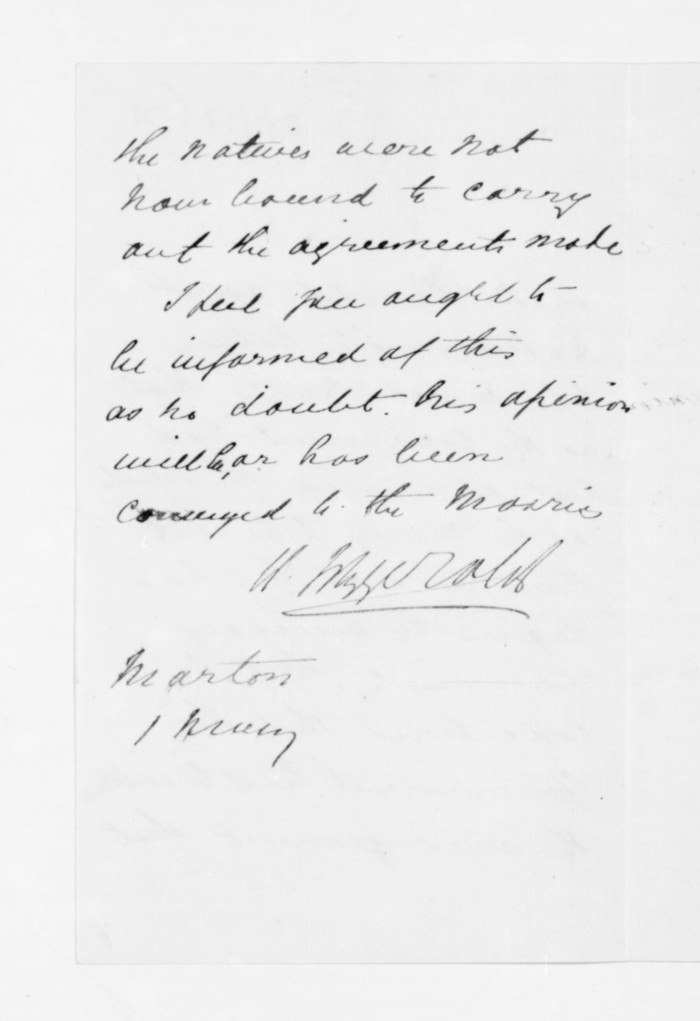 the natives were not
now bound to carry
out the agreements made
I feel you ought to
be informed of this
as no doubt his opinion
will be, or has been
conveyed to the Maories
Fitzgerald
Marton